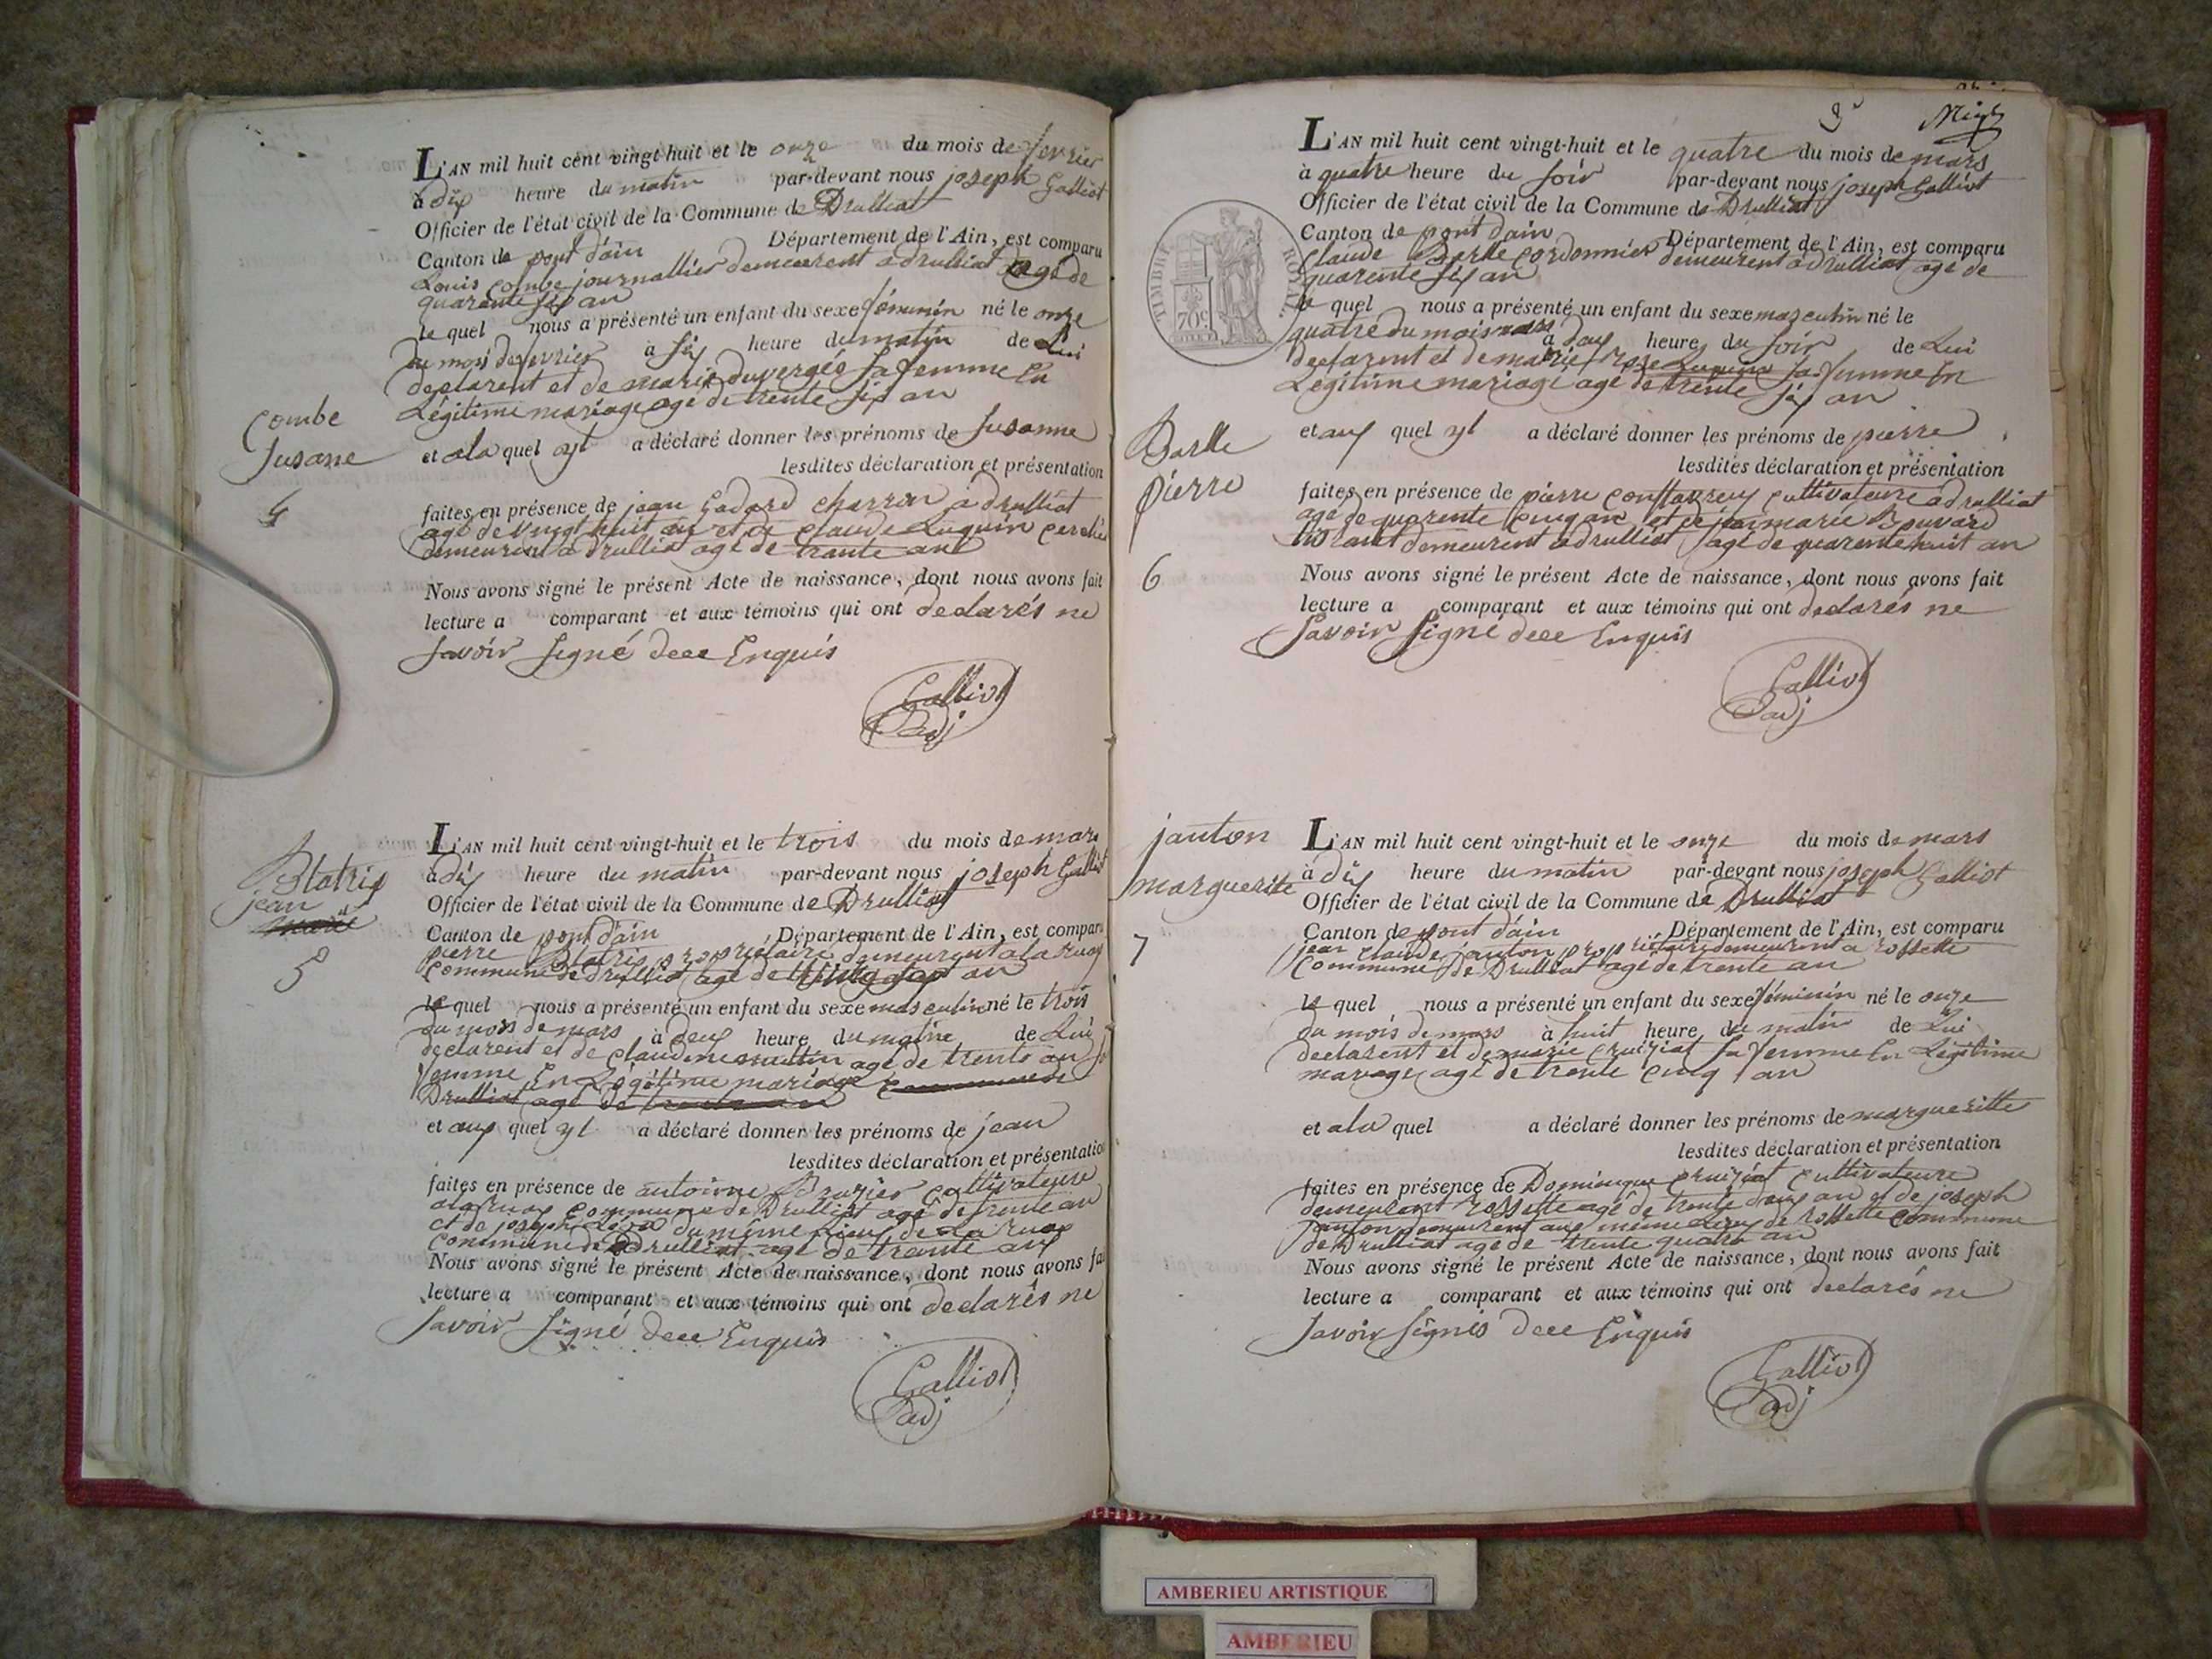 L'AN mil huit cent vingt-huit et le onze du mois de fevrier
à dix heure du matin par-devant nous joseph Galliot
Officier de l'état civil de la Commune de Drulliat
Canton de pont d'ain Département de l'Ain, est comparu
Louis Combe journallier demeurent a drulliat agé de
quarante six an
le quel nous a présenté un enfant du sexe féminin né le onze
du mois de fevrier à six heure du matin de Lui
declarent et de marie duvergée sa femme En
Légitime mariage agé de trente six an
Combe
Susane
4
et a la quel yl a déclaré donner les prénoms de Susanne
lesdites déclaration et présentation
faites en présence de jean Godard charron a drulliat
agé de vingt huit an et de Claude Luquin
demeurent a drulliat agé de trante ans
Nous avons signé le présent Acte de naissance, dont nous avons fait
lecture a comparant et aux témoins qui ont declarés ne
Savoir Signé dece Enquis
Galliot
adj
Blatrix
jean
marie
5
L'AN mil huit cent vingt-huit et le trois du mois de mars
à dix heure du matin par-devant nous joseph Galliot
Officier de l'état civil de la Commune de Drulliat
Canton de pont d'ain Département de l'Ain, est comparu
pierre Blatrix propriétaire demeurent a la ruaz
Commune de drulliat agé de an
le quel nous a présenté un enfant du sexe masculin né le trois
du mois de mars à deux heure du matine de Lui
declarent et de claudine agé de trente an sa
femme En Légitime mariage
Drulliat agé de
et aux quel yl a déclaré donner les prénoms de jean
lesdites déclaration et présentation
faites en présence de antoine Cultivateure
a la ruaz Commune de Drulliat agé de trente an
et de joseph du même Lieux de La ruaz
Commune de Drulliat agé de trante ans
Nous avons signé le présent Acte de naissance, dont nous avons fai
lecture a comparant et aux témoins qui ont declarés ne
Savoir Signé dece Enquis
Galliot
adj
TIMBRE ROYAL
70c
L'AN mil huit cent vingt-huit et le quatre du mois de mars
à quatre heure du soir par-devant nous joseph Galliot
Officier de l'état civil de la Commune de Drulliat
Canton de pont d'ain Département de l'Ain, est comparu
Claude Barlle Cordonnier demeurent a drulliat agé de
quarente six an
le quel nous a présenté un enfant du sexe masculin né le
quatre du mois mars à deux heure du soir de Lui
declarent et de marie rose sa femme En
Legitime mariage agé de trente six an
Barlle
pierre
6
et aux quel yl a déclaré donner les prénoms de pierre
lesdites déclaration et présentation
faites en présence de pierre Cultivateure a drulliat
agé de quarente Cinq an et de jean marie Bouvard
demeurent a drulliat agé de quarente huit an
Nous avons signé le présent Acte de naissance, dont nous avons fait
lecture a comparant et aux témoins qui ont declarés ne
Savoir Signé dece Enquis
Galliot
adj
janton
marguerite
7
L'AN mil huit cent vingt-huit et le onze du mois de mars
à dix heure du matin par-devant nous joseph Galliot
Officier de l'état civil de la Commune de Drulliat
Canton de pont d'ain Département de l'Ain, est comparu
jean claude janton propriétaire demeurent a rossette
Commune de Drulliat agé de trente an
le quel nous a présenté un enfant du sexe féminin né le onze
du mois de mars à huit heure du matin de Lui
declarent et de marie cruiziat sa femme En Légitime
mariage agé de trente Cinq an
et a la quel a déclaré donner les prénoms de margueritte
lesdites déclaration et présentation
faites en présence de Dominique cruiziat Cultivateure
demeurant rossette agé de trente deux an et de joseph
janton demeurent aux même Lieux de rossette Commune
de Drulliat agé de trente quatre an
Nous avons signé le présent Acte de naissance, dont nous avons fait
lecture a comparant et aux témoins qui ont declarés ne
Savoir Signés dece Enquis
Galliot
adj
AMBERIEU ARTISTIQUE
AMBERIEU